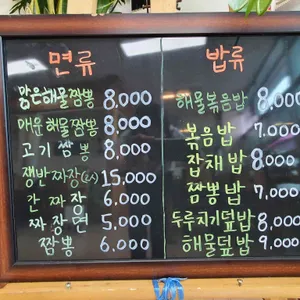 면류
맑은해물짬뽕 8,000
매운해물짬뽕 8,000
고기짬뽕 8,000
쟁반짜장(2人) 15,000
간짜장 6,000
짜장면 5,000
짬뽕 6,000
밥류
해물볶음밥 8,000
볶음밥 7,000
잡채밥 8,000
짬뽕밥 7,000
두루치기덮밥 8,000
해물덮밥 9,000